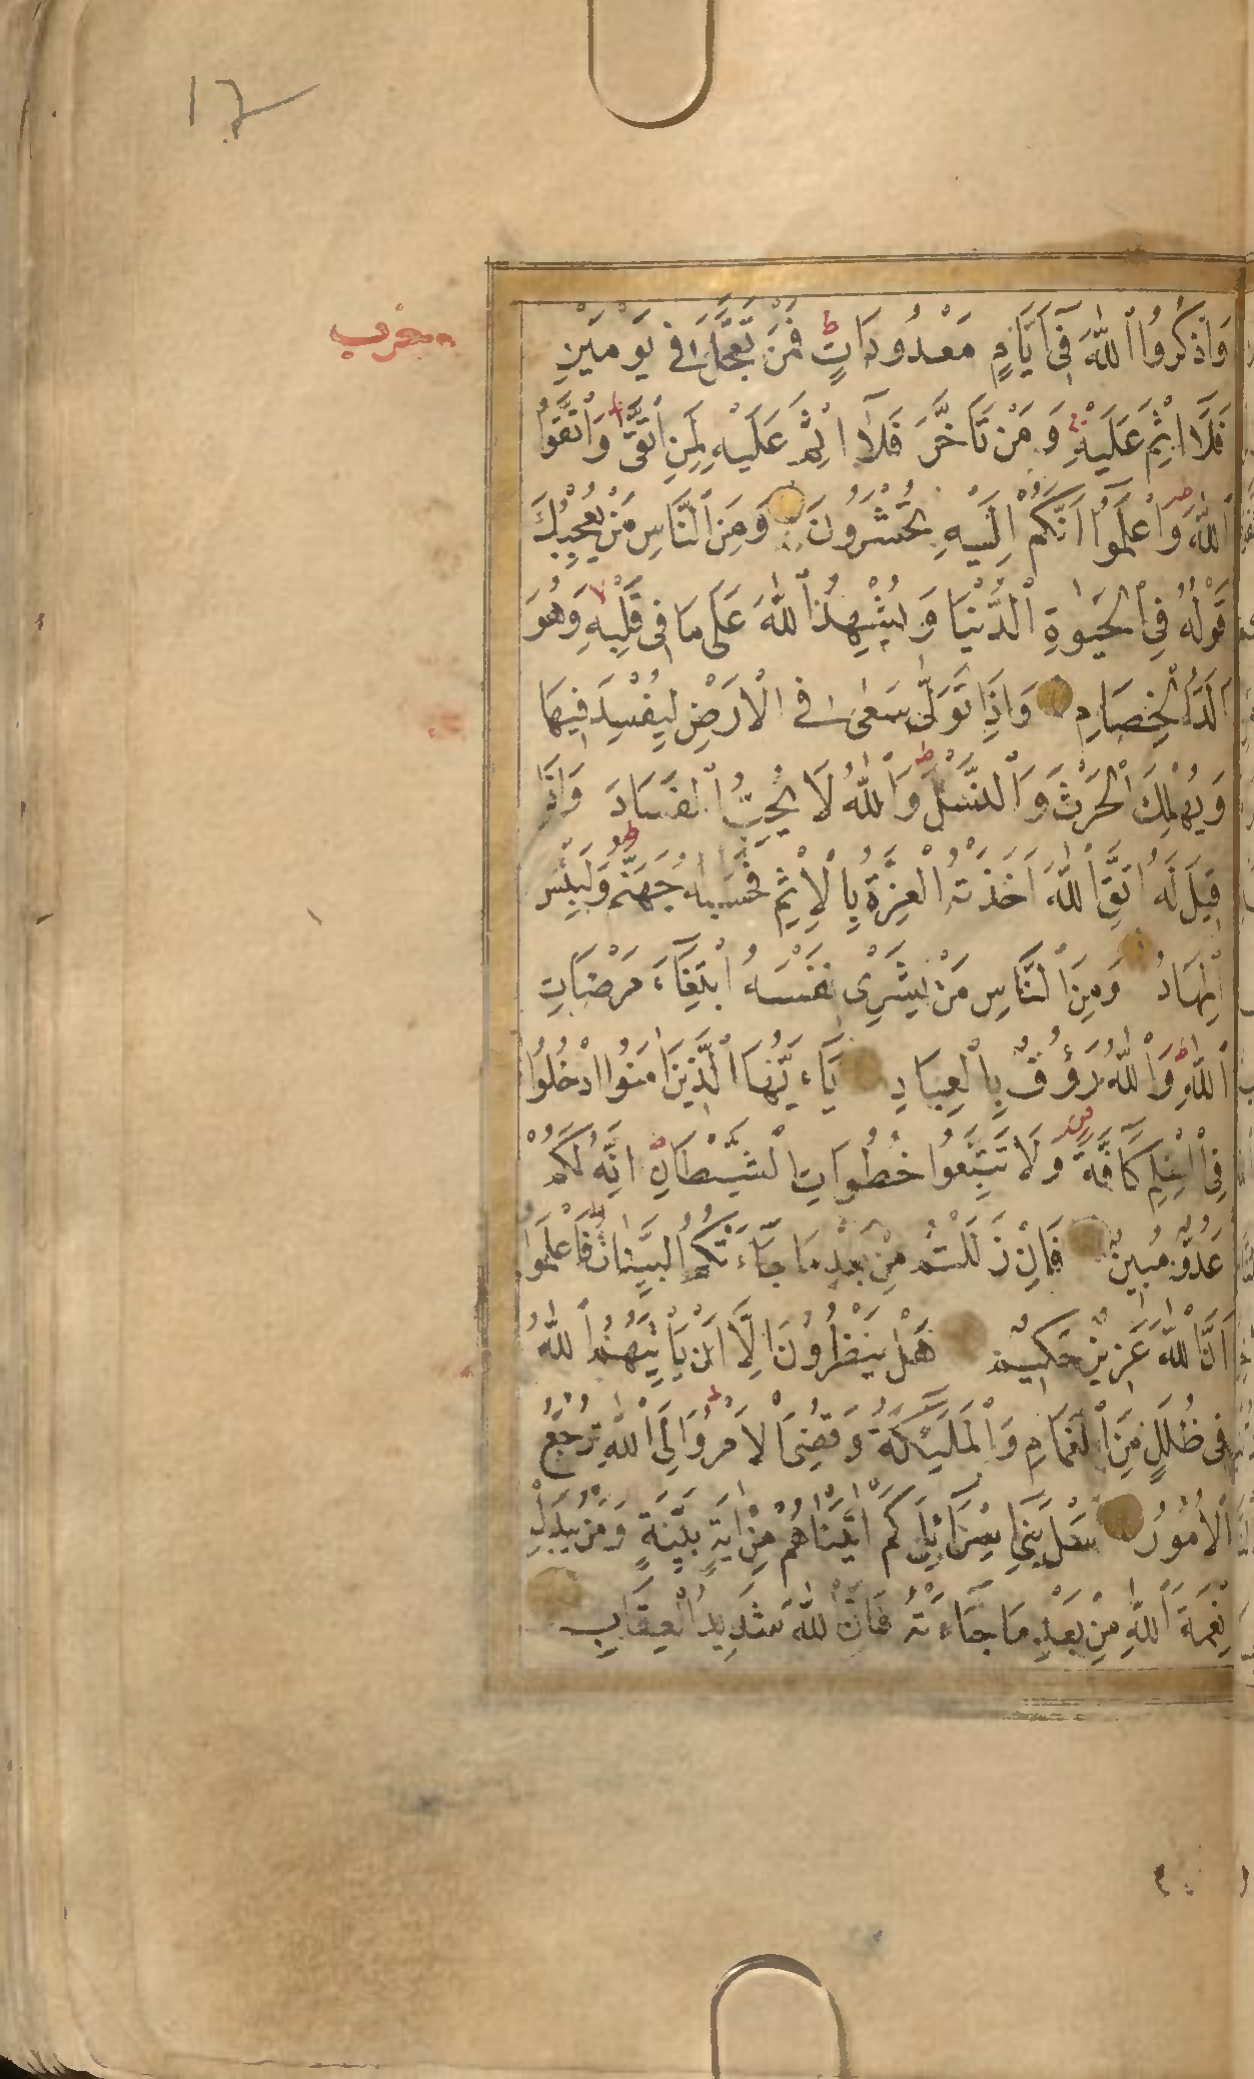 17
حزب
وَاذْكُرُوا اللّٰهَ فِي اَيَّامٍ مَعْدُودَاتٍ ط فَمَنْ تَعَجَّلَ فِي يَوْمَيْنِ
فَلَا اِثْمَ عَلَيْهِ وَمَنْ تَاَخَّرَ فَلَا اِثْمَ عَلَيْهِ لِمَنِ اتَّقٰى ط وَاتَّقُوا
اللّٰهَ وَاعْلَمُوا اَنَّكُمْ اِلَيْهِ تُحْشَرُونَ وَمِنَ النَّاسِ مَنْ يُعْجِبُكَ
قَوْلُهُ فِي الْحَيٰوةِ الدُّنْيَا وَيُشْهِدُ اللّٰهَ عَلٰى مَا فِي قَلْبِهِ لا وَهُوَ
اَلَدُّ الْخِصَامِ وَاِذَا تَوَلّٰى سَعٰى فِي الْاَرْضِ لِيُفْسِدَ فِيهَا
وَيُهْلِكَ الْحَرْثَ وَالنَّسْلَ ط وَاللّٰهُ لَا يُحِبُّ الْفَسَادَ وَاِذَا
قِيلَ لَهُ اتَّقِ اللّٰهَ اَخَذَتْهُ الْعِزَّةُ بِالْاِثْمِ فَحَسْبُهُ جَهَنَّمُ ط وَلَبِئْسَ
الْمِهَادُ وَمِنَ النَّاسِ مَنْ يَشْرِي نَفْسَهُ ابْتِغَاءَ مَرْضَاتِ
اللّٰهِ ط وَاللّٰهُ رَؤُفٌ بِالْعِبَادِ يَاءَيُّهَا الَّذِينَ اٰمَنُوا ادْخُلُوا
فِي السِّلْمِ كَافَّةً وَلَا تَتَّبِعُوا خُطُوَاتِ الشَّيْطَانِ ط اِنَّهُ لَكُمْ
عَدُوٌّ مُبِينٌ فَاِنْ زَلَلْتُمْ مِنْ بَعْدِ مَا جَاءَتْكُمُ الْبَيِّنَاتُ فَاعْلَمُوا
اَنَّ اللّٰهَ عَزِيزٌ حَكِيمٌ هَلْ يَنْظُرُونَ اِلَّا اَنْ يَأْتِيَهُمُ اللّٰهُ
فِي ظُلَلٍ مِنَ الْغَمَامِ وَالْمَلٰئِكَةُ وَقُضِيَ الْاَمْرُ ط وَاِلَى اللّٰهِ تُرْجَعُ
الْاُمُورُ سَلْ بَنِي اِسْرَائِيلَ كَمْ اٰتَيْنَاهُمْ مِنْ اٰيَةٍ بَيِّنَةٍ وَمَنْ يُبَدِّلْ
نِعْمَةَ اللّٰهِ مِنْ بَعْدِ مَا جَاءَتْهُ فَاِنَّ اللّٰهَ شَدِيدُ الْعِقَابِ